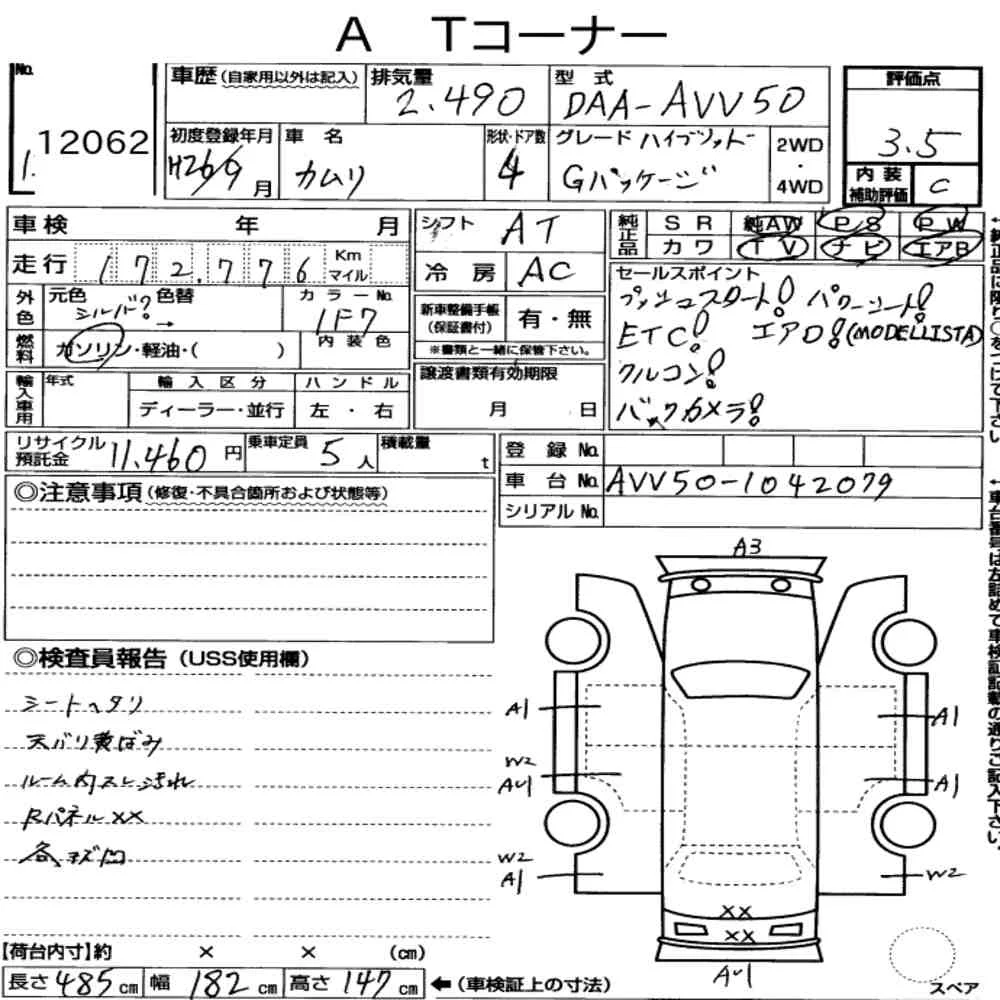 A Tコーナー
No.
12062
1.
車歴(自家用以外は記入)
排気量
2.490
型式
DAA-AVV50
評価点
3.5
初度登録年月
H26/9月
車名
カムリ
形状・ドア数
4
グレード ハイブリッド
Gパッケージ
2WD
・
4WD
内装
補助評価
C
車検 年 月
シフト
AT
純正品
SR 純AW PS PW
カワ TV ナビ エアB
走行
172,776
Km
マイル
冷房
AC
セールスポイント
プッシュスタート! パワーシート!
ETC! エアロ!(MODELLISTA)
クルコン!
バックカメラ!
外色
元色
シルバー?
色替
→
カラーNo.
1F7
新車整備手帳
(保証書付)
有・無
※書類と一緒に保管下さい。
燃料
ガソリン・軽油・( )
内装色
輸入車用
年式
輸入区分
ディーラー・並行
ハンドル
左・右
譲渡書類有効期限
月 日
リサイクル
預託金
11.460円
乗車定員
5人
積載量
t
登録No.
車台No.
AVV50-1042079
シリアルNo.
←純正品は限り○をつけて下さい
←車台番号は左詰めで車検証記載の通りご記入下さい。
◎注意事項(修復・不具合箇所および状態等)
◎検査員報告(USS使用欄)
シートヘタリ
天バリ黄ばみ
ルーム内スレ汚れ
Rパネル××
各、キズ凹
A3
A1
A1
W2
AU1
A1
W2
A1
W2
××
××
AU1
スペア
【荷台内寸】約 × × (cm)
長さ485cm 幅182cm 高さ147cm ←(車検証上の寸法)